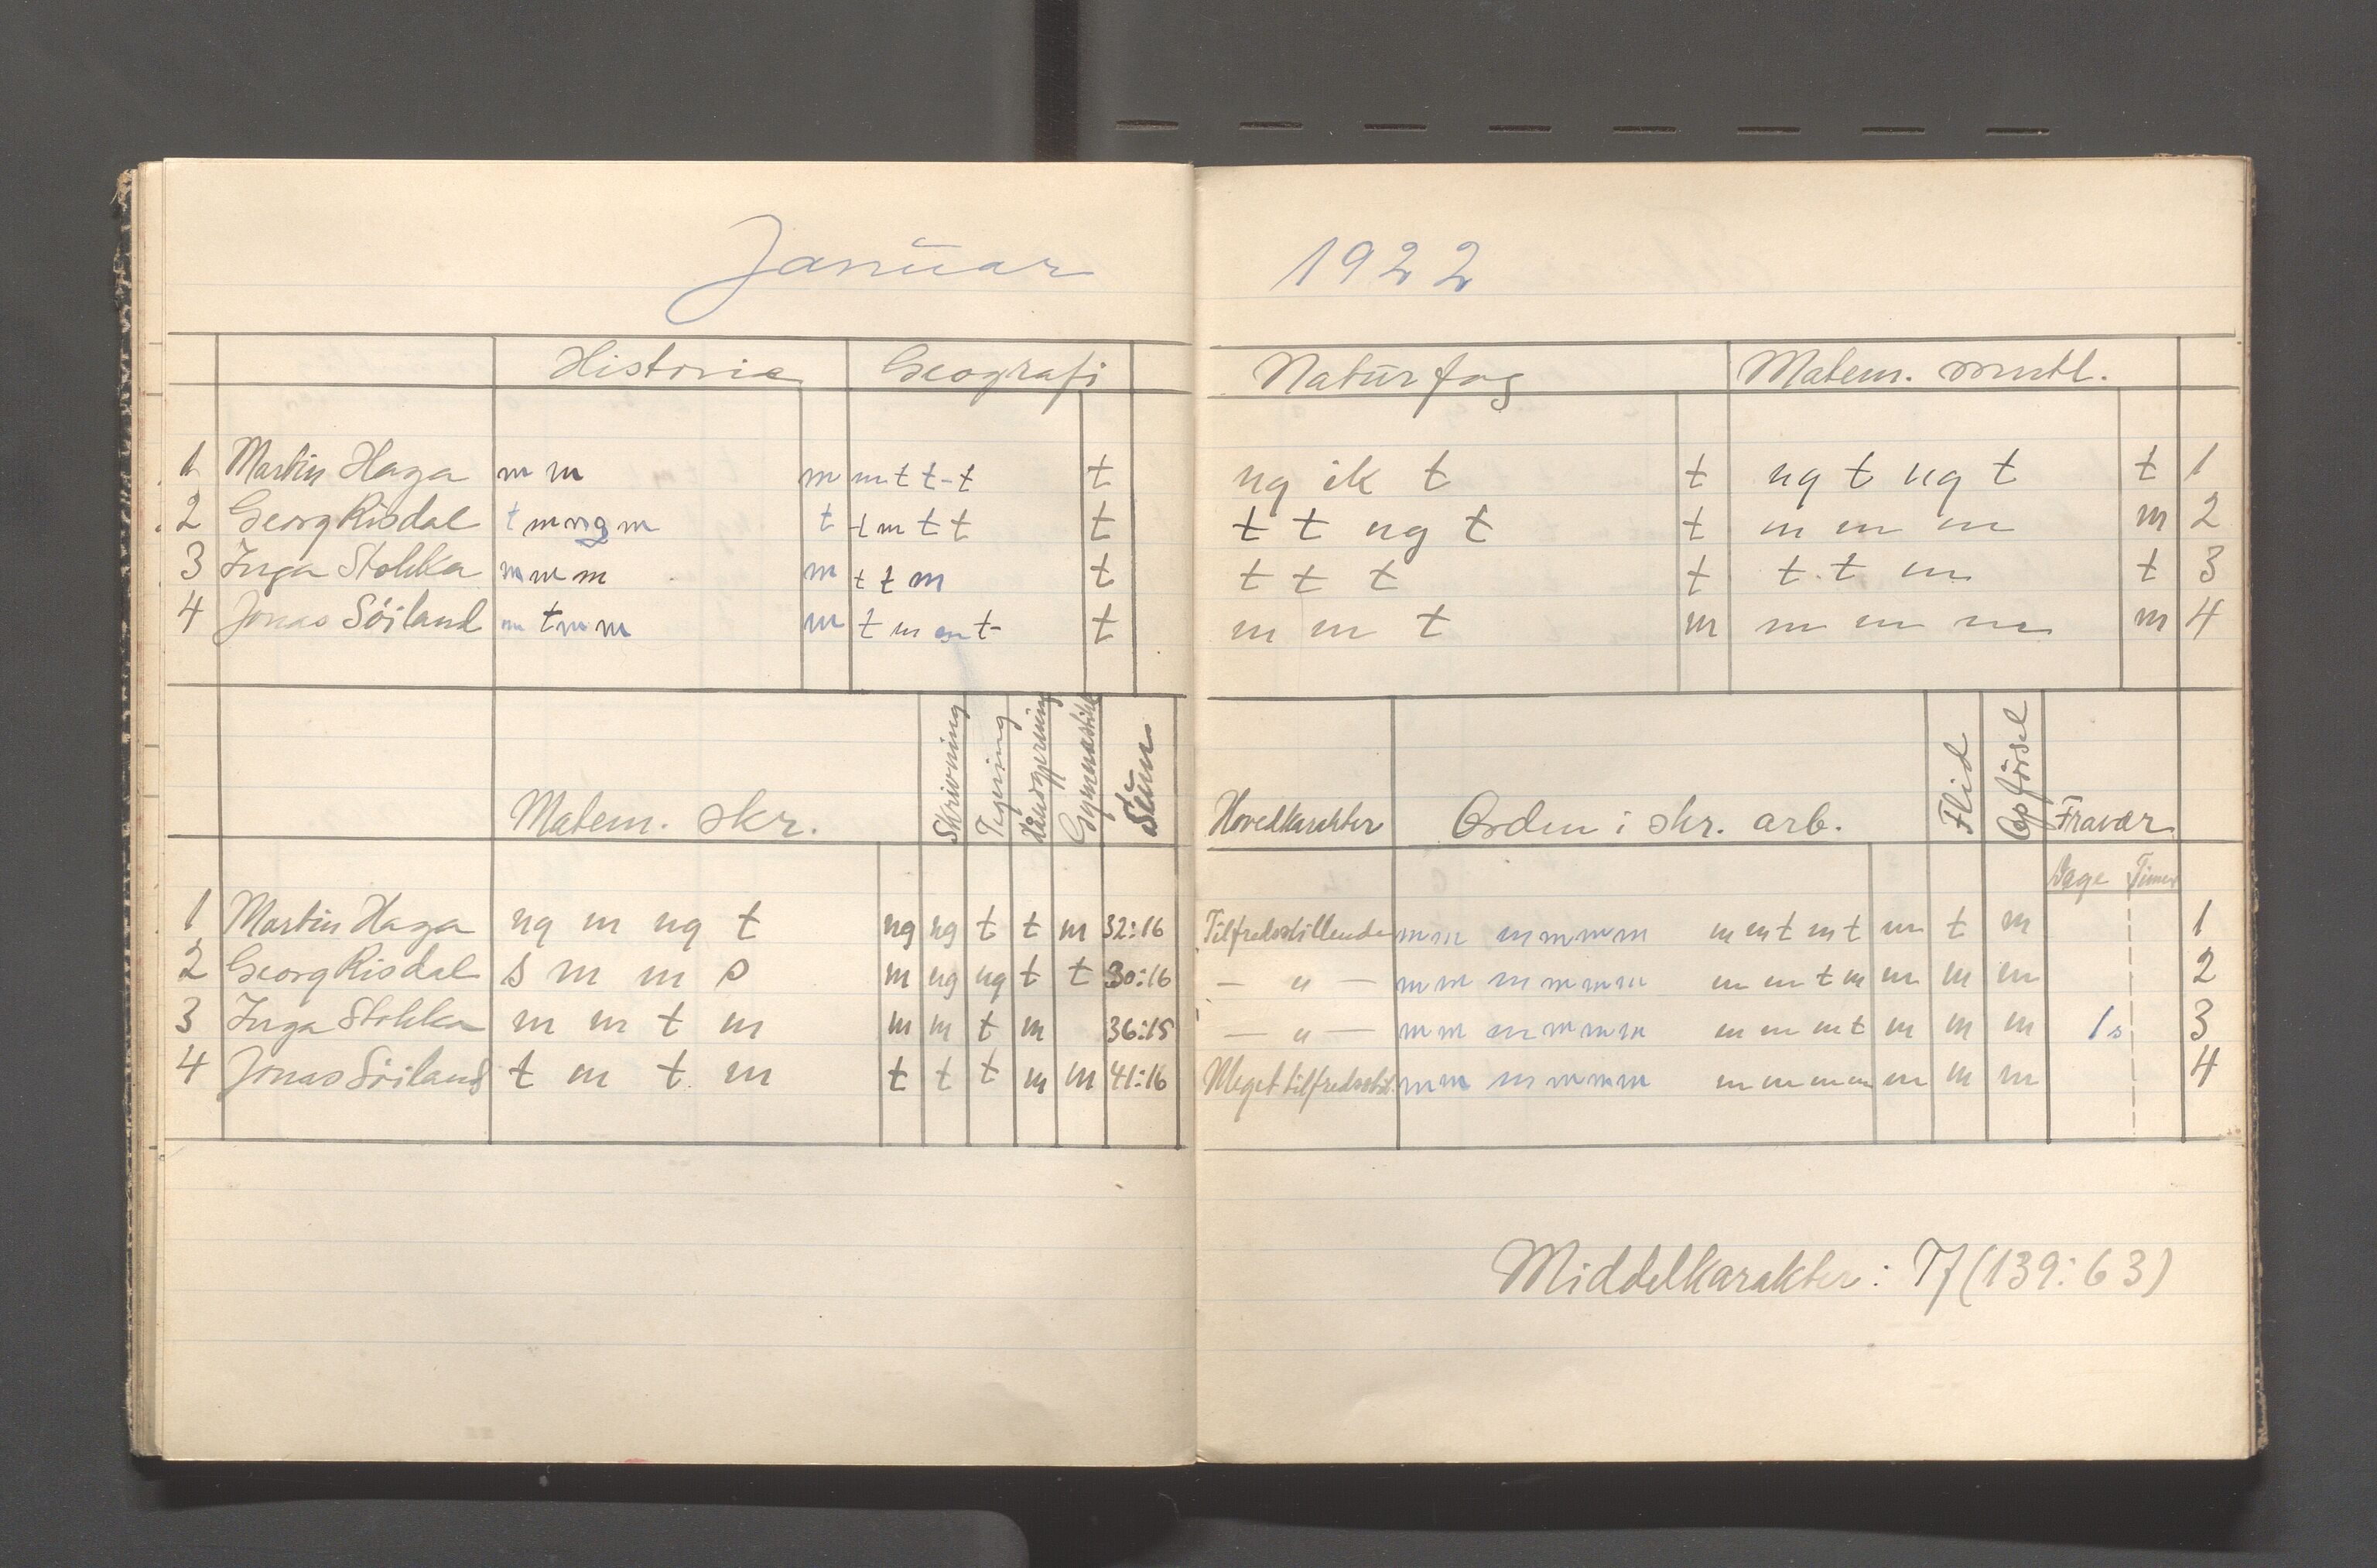 Januar 1922
Historie Geografi Naturfag Matem. mntl.
1 Martin Haga m m m m t t-t t ng ik t t ng t ng t t 1
2 Georg Risdal t m ng m t t m t t t t t ng t t m m m m 2
3 Inga Stokka m m m m t t m t t t t t t t m t 3
4 Jonas Söiland m t m m m t m m t- t m m t m m m m m 4
Matem. skr. Skrivning Tegning Håndgjerning Gymnastikk Sum Hovedkarakter Orden i skr. arb. Flid Opförsel Fravær
Dage Timer
1 Martin Haga ng m ng t ng ng t t m 32:16 Tilfredsstillende m m m m m m m m t m t m t m 1
2 Georg Risdal s m m s m ng ng t t 30:16 — " — m m m m m m m m t m m m m 2
3 Inga Stokka m m t m m m t m 36:15 — " — m m m m m m m m m t m m m 1s 3
4 Jonas Söiland t m t m t t t m m 41:16 Meget tilfredsstil. m m m m m m m m m m m m m 4
Middelkarakter: T (139:63)